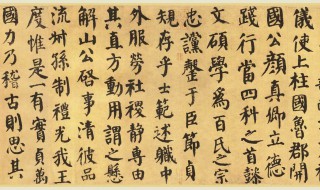 儀使上柱國魯郡開
國公顏真卿立德
踐行當四科之首懿
文碩學為百氏之宗
忠讜罄于臣節貞
規存乎士範述職中
外服勞社稷靜專由
其直方動用謂之懸
解山公啓事清彼品
流叔孫制禮光我王
度惟是一有實貞萬
國力乃稽古則思其